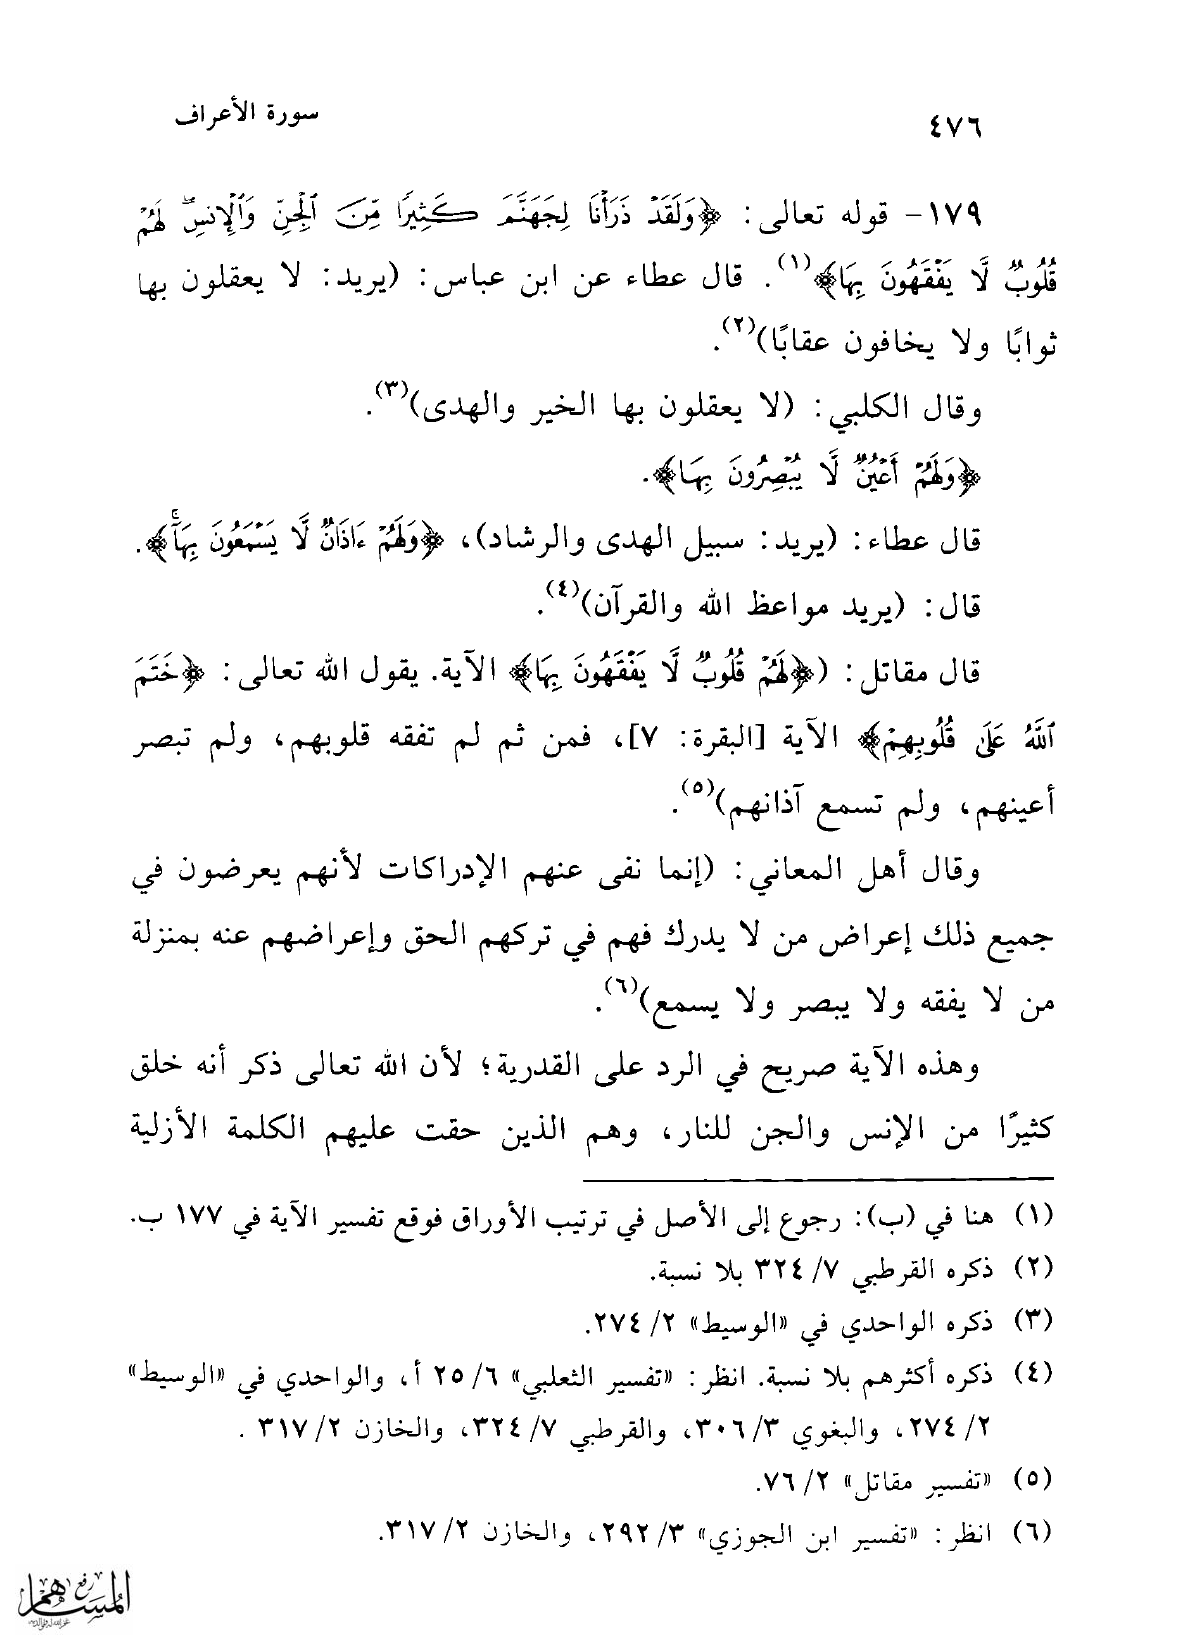 ٤٧٦
سورة الأعراف
١٧٩- قوله تعالى: ﴿وَلَقَدْ ذَرَأْنَا لِجَهَنَّمَ كَثِيرًا مِّنَ ٱلْجِنِّ وَٱلْإِنسِ ۖ لَهُمْ
قُلُوبٌ لَّا يَفْقَهُونَ بِهَا﴾(١). قال عطاء عن ابن عباس: (يريد: لا يعقلون بها
ثوابًا ولا يخافون عقابًا)(٢).
وقال الكلبي: (لا يعقلون بها الخير والهدى)(٣).
﴿وَلَهُمْ أَعْيُنٌ لَّا يُبْصِرُونَ بِهَا﴾.
قال عطاء: (يريد: سبيل الهدى والرشاد)، ﴿وَلَهُمْ ءَاذَانٌ لَّا يَسْمَعُونَ بِهَآ ۚ﴾.
قال: (يريد مواعظ الله والقرآن)(٤).
قال مقاتل: (﴿لَهُمْ قُلُوبٌ لَّا يَفْقَهُونَ بِهَا﴾ الآية. يقول الله تعالى: ﴿خَتَمَ
ٱللَّهُ عَلَىٰ قُلُوبِهِمْ﴾ الآية [البقرة: ٧]، فمن ثم لم تفقه قلوبهم، ولم تبصر
أعينهم، ولم تسمع آذانهم)(٥).
وقال أهل المعاني: (إنما نفى عنهم الإدراكات لأنهم يعرضون في
جميع ذلك إعراض من لا يدرك فهم في تركهم الحق وإعراضهم عنه بمنزلة
من لا يفقه ولا يبصر ولا يسمع)(٦).
وهذه الآية صريح في الرد على القدرية؛ لأن الله تعالى ذكر أنه خلق
كثيرًا من الإنس والجن للنار، وهم الذين حقت عليهم الكلمة الأزلية
(١) هنا في (ب): رجوع إلى الأصل في ترتيب الأوراق فوقع تفسير الآية في ١٧٧ ب.
(٢) ذكره القرطبي ٧/ ٣٢٤ بلا نسبة.
(٣) ذكره الواحدي في «الوسيط» ٢/ ٢٧٤.
(٤) ذكره أكثرهم بلا نسبة. انظر: «تفسير الثعلبي» ٦/ ٢٥ أ، والواحدي في «الوسيط»
٢/ ٢٧٤، والبغوي ٣/ ٣٠٦، والقرطبي ٧/ ٣٢٤، والخازن ٢/ ٣١٧ .
(٥) «تفسير مقاتل» ٢/ ٧٦.
(٦) انظر: «تفسير ابن الجوزي» ٣/ ٢٩٢، والخازن ٢/ ٣١٧.